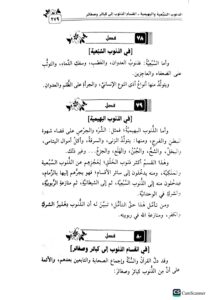 الذنوب السَّبُعية والبهيمية - انقسام الذنوب إلى كبائر وصغائر
٢٧٩
٧٨ فصل
في الذنوب السَّبُعية
وأما السَّبُعية: فذنوب العدوان، والغضب، وسفك الدماء، والتوثُّب
على الضعفاء والعاجزين.
ويتولَّد منها أنواع أذى النوع الإنساني، والجرأة على الظُّلم والعدوان.
٧٩ فصل
في الذنوب البهيمية
وأما الذُّنوب البهيميَّة: فمثل: الشَّرَه والحرص على قضاء شهوة
البطن والفرج، ومنها: يتولَّد الزنى، والسرقة، وأكل أموال اليتامى،
والبخل، والشُّح، والجبن، والهلع، والجزع... وغير ذلك.
وهذا القسم أكثر ذنوب الخلق؛ لعجزهم عن الذنوب السَّبُعية
والملكيَّة، ومنه يدخلون إلى سائر الأقسام، فهو يجرُّهم إليها بالزِّمام،
فيدخلون منه إلى الذنوب السَّبُعية، ثم إلى الشيطانيَّة، ثم منازعة الرُّبوبيَّة
والشرك في الوحدانية.
ومن تأمَّل هذا حقَّ التأمُّل، تبيَّن له أن الذُّنوب دهليز الشرك
والكفر، ومنازعة الله في ربوبيته.
٨٠ فصل
في انقسام الذنوب إلى كبائر وصغائر
وقد دلَّ القرآن والسُّنَّة وإجماع الصحابة والتابعين بعدهم، والأئمة
على أنَّ من الذنوب كبائر وصغائر:
CS CamScanner